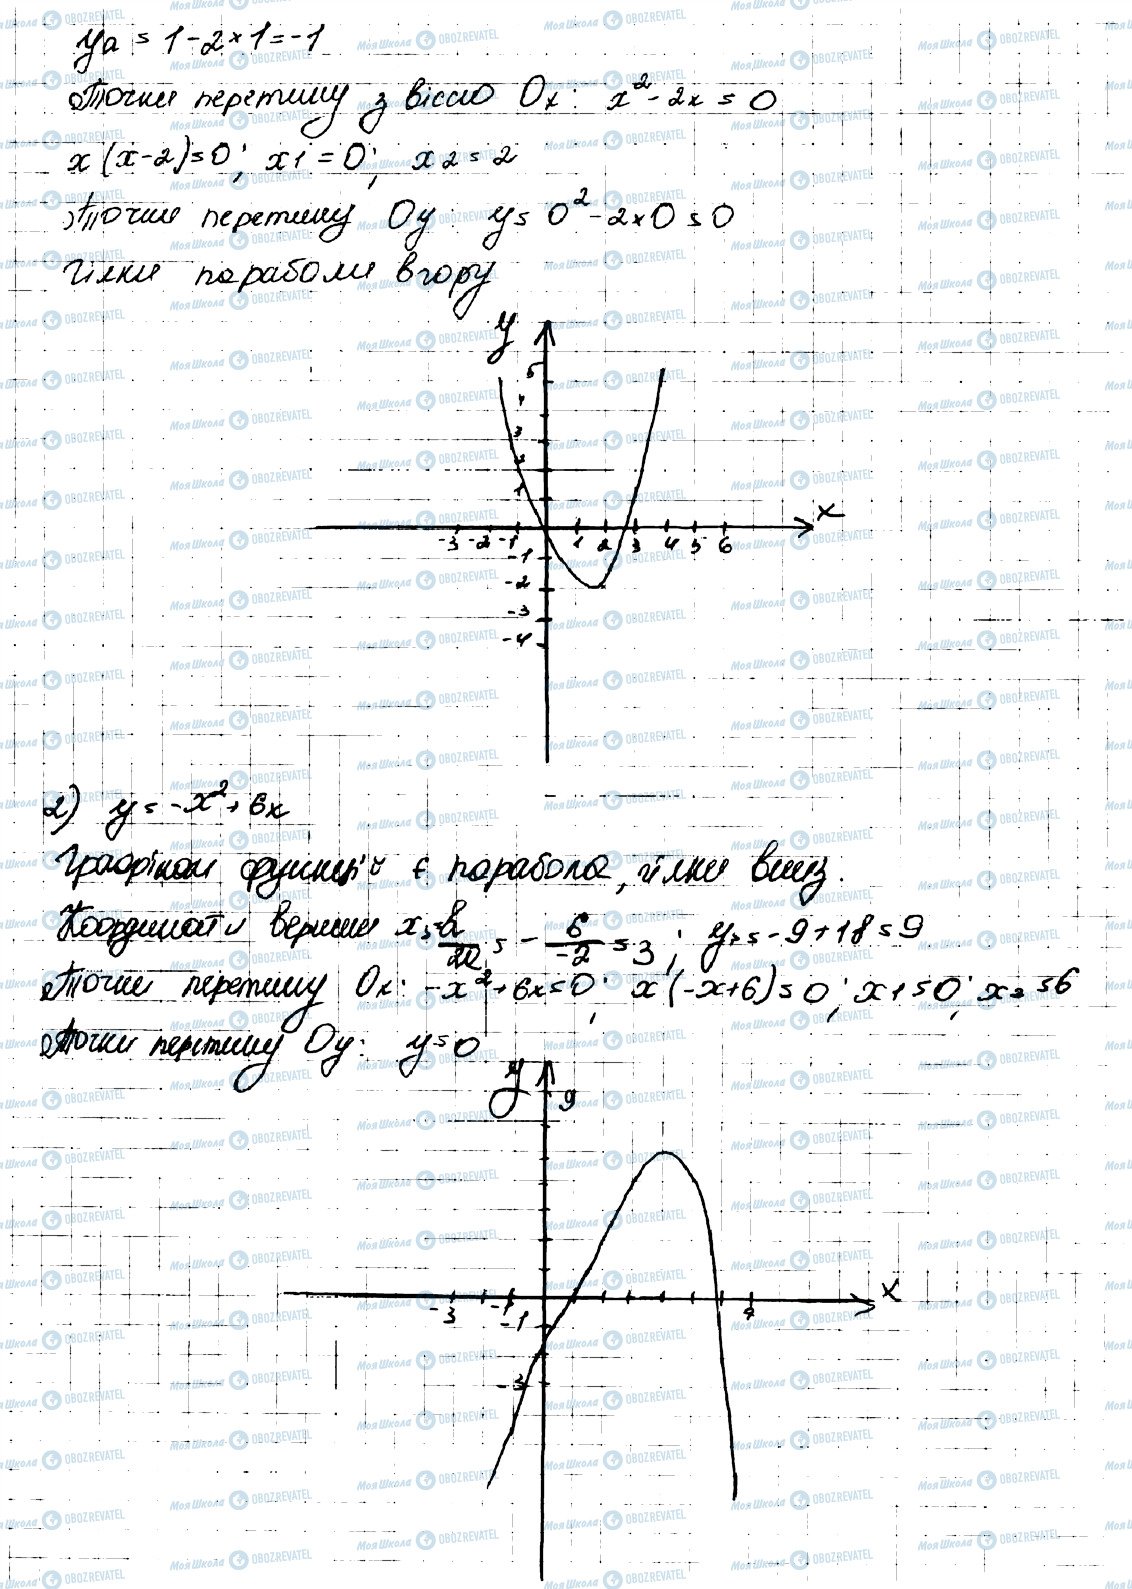 yв = 1 - 2 × 1 = -1
Точки перетину з віссю Ox: x² - 2x = 0
x(x-2) = 0; x1 = 0; x2 = 2
Точки перетину Oy: y = 0² - 2×0 = 0
Гілки параболи вгору
y
5
4
3
2
1
x
-3 -2 -1 1 2 3 4 5 6
-1
-2
-3
-4
2) y = -x² + 6x
Графіком функції є парабола, гілки вниз.
Координати вершини x = -b/2a = - 6/-2 = 3; y = -9+18 = 9
Точки перетину Ox: -x² + 6x = 0; x(-x+6) = 0; x1 = 0; x2 = 6
Точки перетину Oy: y = 0
y
9
x
-3 -1
-1
-3